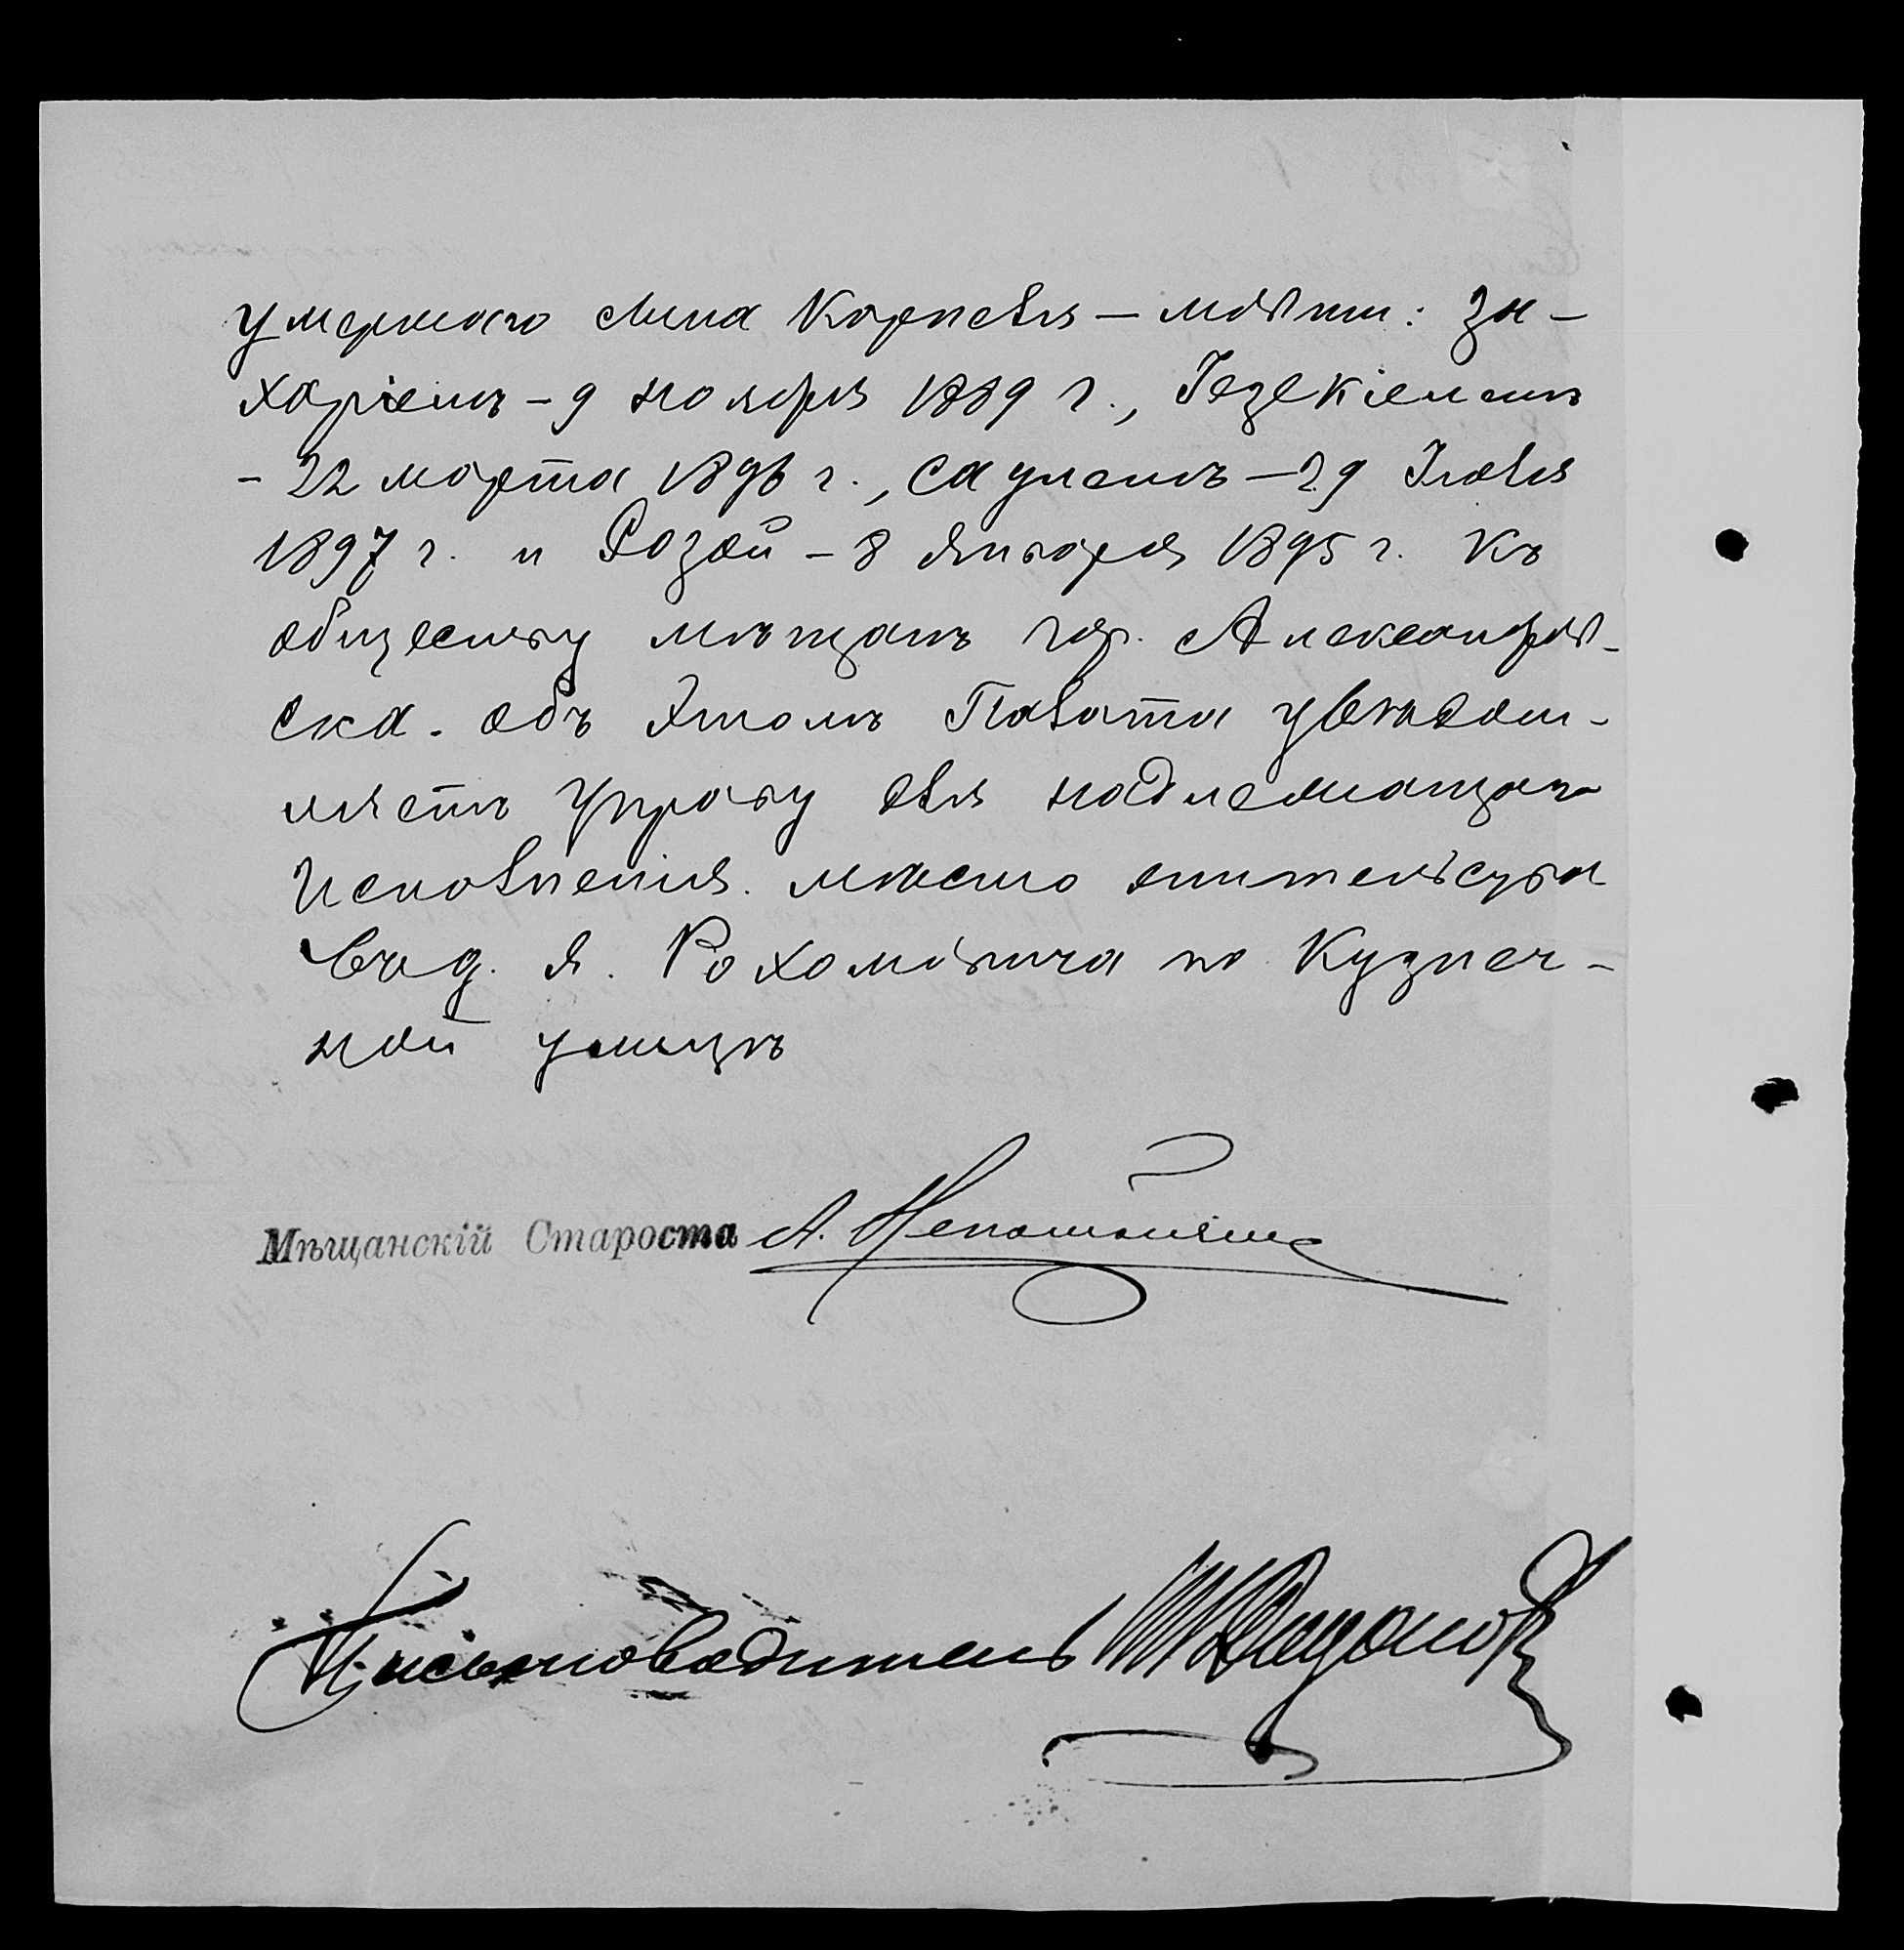 умершаго сына Корнелiя — детьми: За-
харiемъ - 9 ноября 1889 г., Iезекiелемъ
- 22 марта 1896 г., Саулемъ — 29 Iюля
1897 г. и Розой - 8 января 1895 г. къ
обществу мѣщанъ гор. Александров-
ска. Объ этомъ Палата увѣдом-
ляетъ Управу для надлежащаго
исполненiя. Мѣсто жительства
въ д. Я. Рохомовича по Кузнеч-
ной улицѣ
Мѣщанскій Староста А.
Письмоводитель